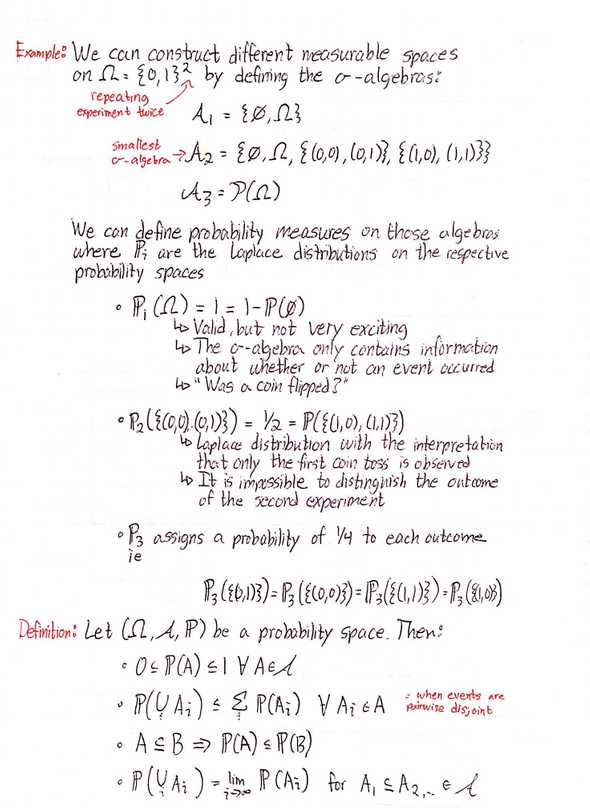 Example: We can construct different measurable spaces
on Ω = {0,1}² by defining the σ-algebras:
repeating
experiment twice
A₁ = {∅, Ω}
smallest
σ-algebra → A₂ = {∅, Ω, {(0,0), (0,1)}, {(1,0), (1,1)}}
A₃ = P(Ω)
We can define probability measures on those algebras
where ℙᵢ are the Laplace distributions on the respective
probability spaces
• ℙ₁(Ω) = 1 = 1-ℙ(∅)
↳ Valid, but not very exciting
↳ The σ-algebra only contains information
about whether or not an event occurred
↳ "Was a coin flipped?"
• ℙ₂({(0,0),(0,1)}) = 1/2 = ℙ({(1,0), (1,1)})
↳ Laplace distribution with the interpretation
that only the first coin toss is observed
↳ It is impossible to distinguish the outcome
of the second experiment
• ℙ₃ assigns a probability of 1/4 to each outcome
ie
ℙ₃({(0,1)}) = ℙ₃({(0,0)}) = ℙ₃({(1,1)}) = ℙ₃({(1,0)})
Definition: Let (Ω, A, ℙ) be a probability space. Then:
• 0 ≤ ℙ(A) ≤ 1 ∀ A ∈ A
• ℙ(⋃ᵢ Aᵢ) ≤ Σᵢ ℙ(Aᵢ) ∀ Aᵢ ∈ A = when events are
pairwise disjoint
• A ⊆ B ⇒ ℙ(A) ≤ ℙ(B)
• ℙ(⋃ᵢ Aᵢ) = lim i→∞ ℙ(Aᵢ) for A₁ ⊆ A₂,... ∈ A